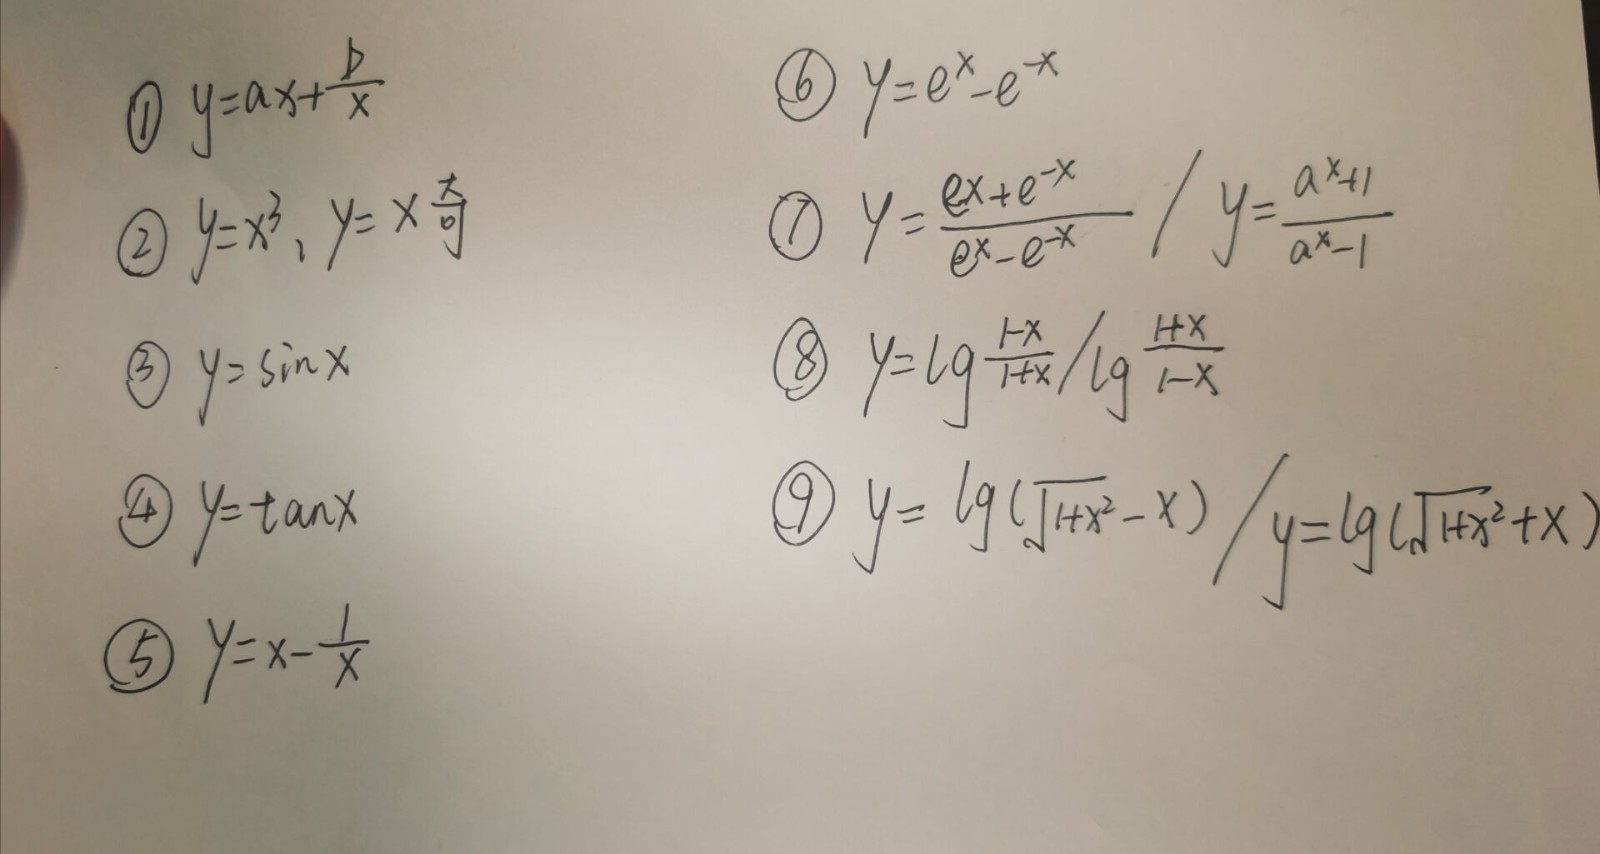 ① y=ax+b/x
② y=x³、y=x^(奇/奇)
③ y=sinx
④ y=tanx
⑤ y=x-1/x
⑥ y=eˣ-e⁻ˣ
⑦ y=(ex+e⁻ˣ)/(eˣ-e⁻ˣ) / y=(aˣ+1)/(aˣ-1)
⑧ y=lg (1-x)/(1+x) / lg (1+x)/(1-x)
⑨ y=lg(√(1+x²)-x) / y=lg(√(1+x²)+x)